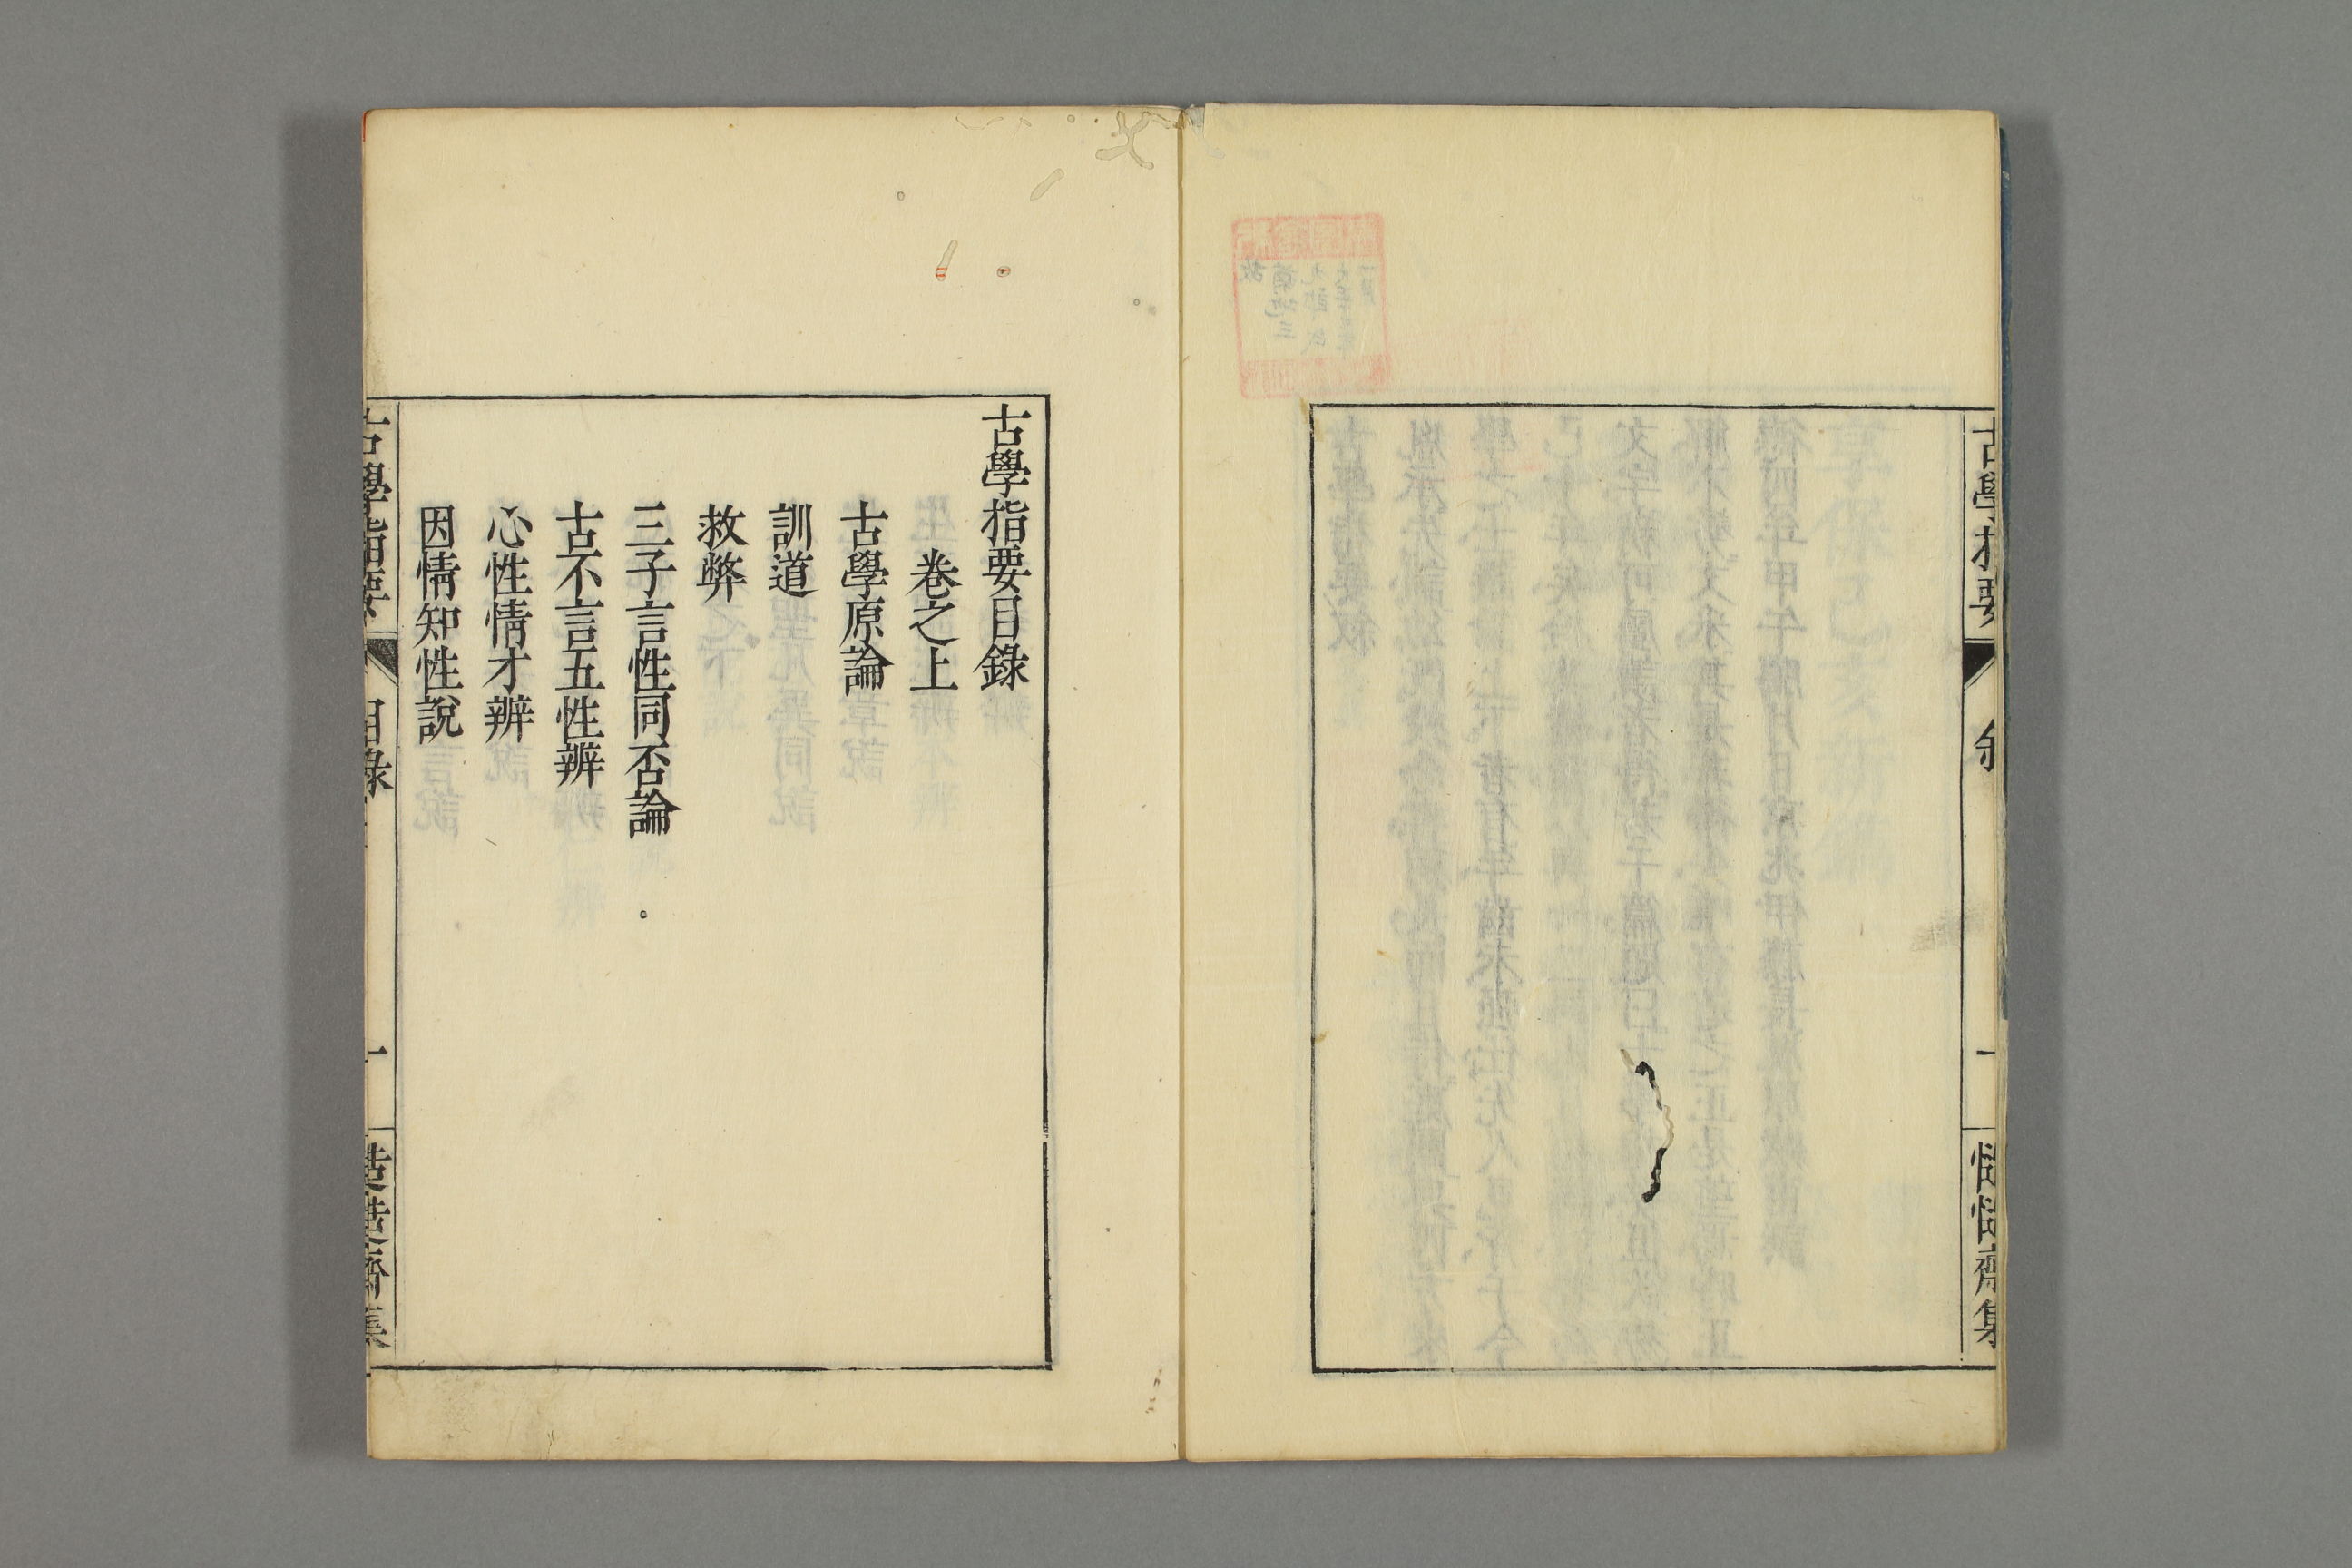 古學指要
叙
一
慥慥齋集
古學指要目錄
卷之上
古學原論
訓道
救弊
三子言性同否論
古不言五性辨
心性情才辨
因情知性說
古學指要
目錄
一
慥慥齋集